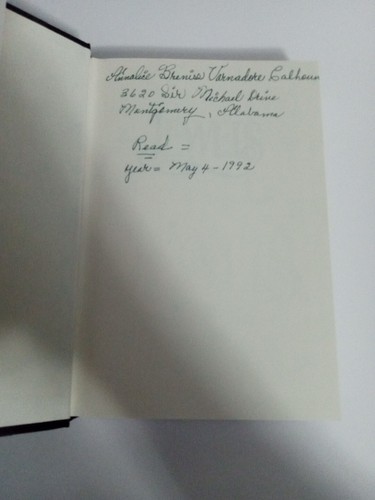 Annalise Varnadore Calhoun
3620 Sir Michael Drive
Montgomery, Alabama
Read =
year = May 4 - 1992